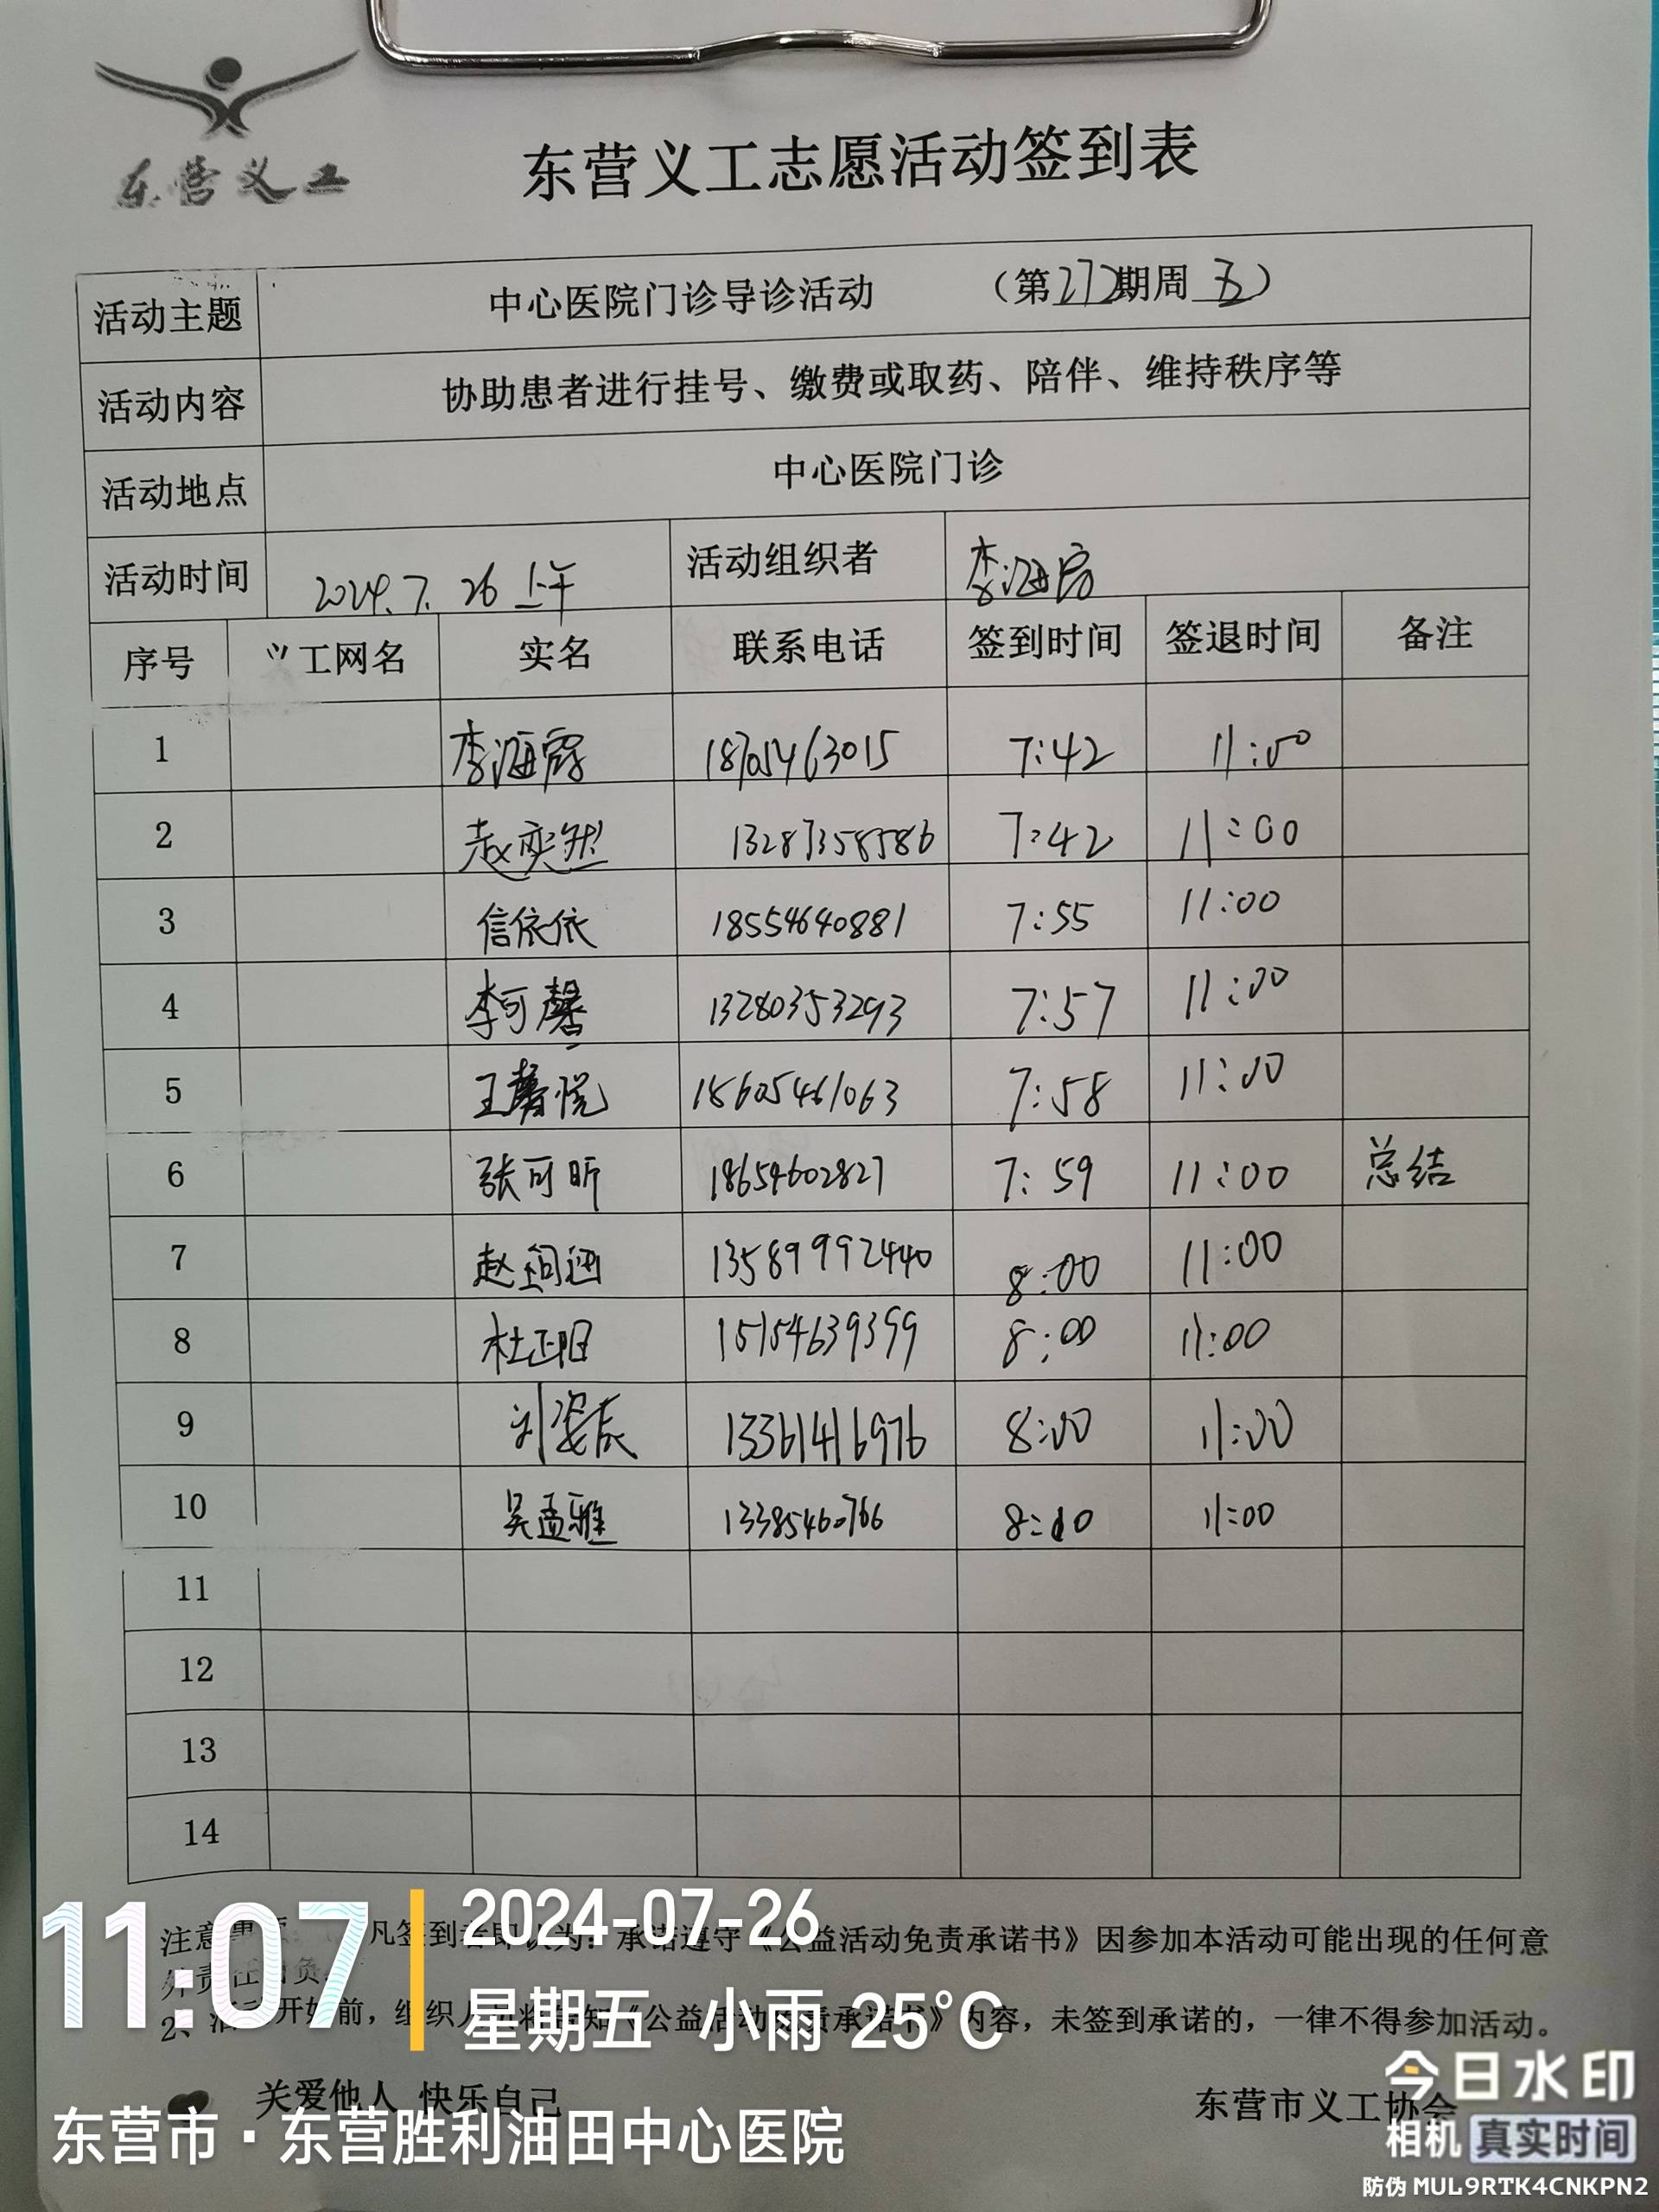 东营义工
东营义工志愿活动签到表
活动主题 中心医院门诊导诊活动 （第272期周五）
活动内容 协助患者进行挂号、缴费或取药、陪伴、维持秩序等
活动地点 中心医院门诊
活动时间 2024.7.26上午 活动组织者 李海
序号 义工网名 实名 联系电话 签到时间 签退时间 备注
1 李海霞 18705463015 7:42 11:00
2 赵奕然 13287358586 7:42 11:00
3 信依依 18554640881 7:55 11:00
4 李可馨 13280353293 7:57 11:00
5 王馨悦 18605461063 7:58 11:00
6 张可昕 18654602827 7:59 11:00 总结
7 赵 涵 13589992440 8:00 11:00
8 杜正阳 15154639399 8:00 11:00
9 刘姿辰 13361416976 8:00 11:00
10 吴孟雅 13385460766 8:10 11:00
11
12
13
14
注意事项： 凡签到者即认为：承诺遵守《公益活动免责承诺书》因参加本活动可能出现的任何意
外责任自负。
2、活动开始前，组织人 将告知《公益活动免责承诺书》内容，未签到承诺的，一律不得参加活动。
关爱他人 快乐自己
东营市义工协会
11:07
2024-07-26
星期五 小雨 25°C
东营市·东营胜利油田中心医院
今日水印
相机 真实时间
防伪 MUL9RTK4CNKPN2